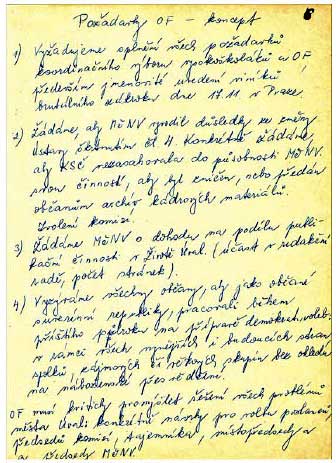 Požadavky OF - koncept
1) Vyžadujeme splnění všech požadavků
koordinačního výboru vysokoškoláků a OF
především jmenovité uvedení viníků
brutálního zákroku dne 17.11 v Praze.
2) Žádáme, aby MěNV vyvodil důsledky ze změny
ústavy škrtnutím čl. 4. Konkrétně žádáme,
aby KSČ nezasahovala do působnosti MěNV
svou činností, aby byl zničen, nebo předán
občanům archiv kádrových materiálů.
Zvolení komise.
3) Žádáme MěNV o dohodu na podílu publi-
kační činnosti v Životě Úval. (účast v redakční
radě, počet stránek).
4) Vyzýváme všechny občany, aby jako občané
suverénní republiky, pracovali během
příštího půlroku na přípravě demokrat. voleb
v rámci všech nynějších i budoucích stran
spolků, zájmových či věkových skupin bez ohledu
na náboženské přesvědčení.
OF musí kriticky promýšlet řešení všech problémů
města Úvali konkrétní návrhy pro volbu poslanců,
předsedů komisí, tajemníka, místopředsedy a
a předsedy MěNV.